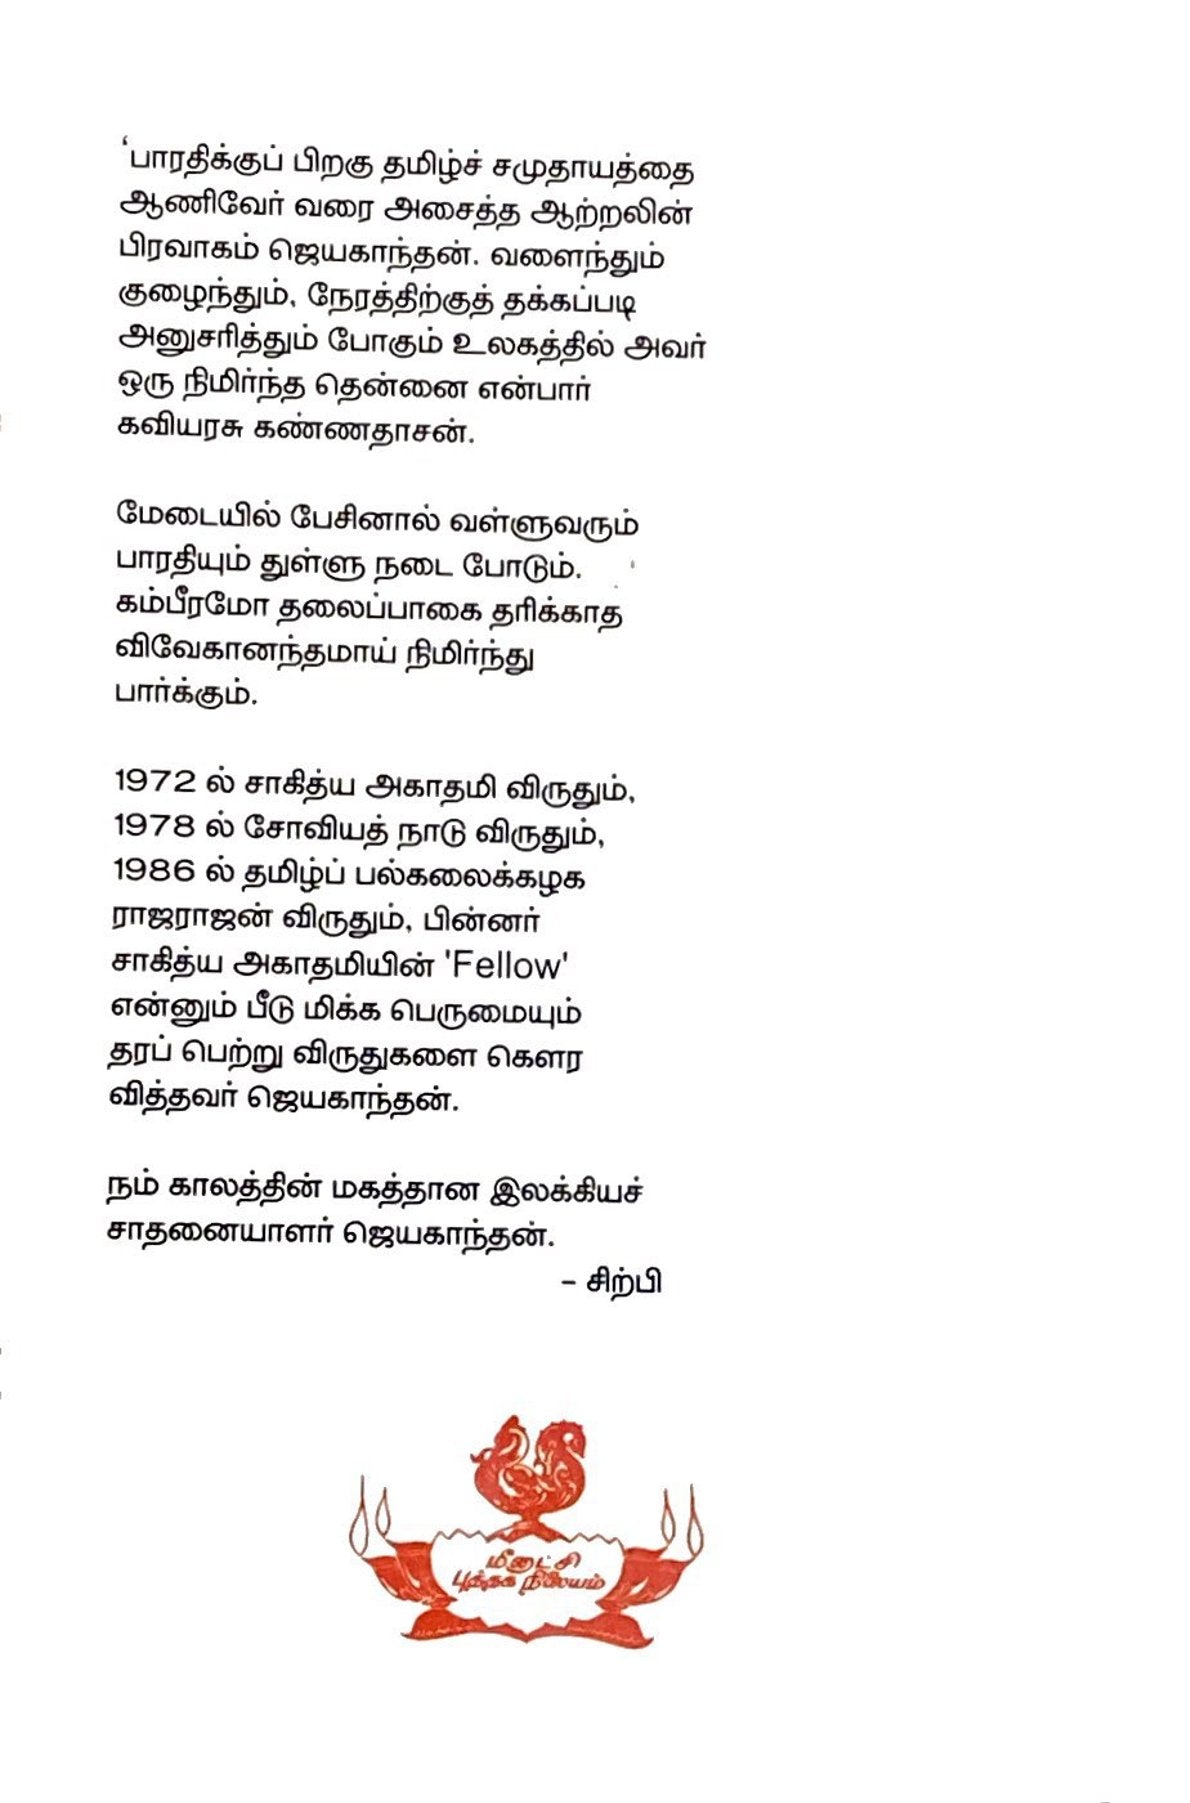 ‘பாரதிக்குப் பிறகு தமிழ்ச் சமுதாயத்தை
ஆணிவேர் வரை அசைத்த ஆற்றலின்
பிரவாகம் ஜெயகாந்தன். வளைந்தும்
குழைந்தும், நேரத்திற்குத் தக்கப்படி
அனுசரித்தும் போகும் உலகத்தில் அவர்
ஒரு நிமிர்ந்த தென்னை என்பார்
கவியரசு கண்ணதாசன்.
மேடையில் பேசினால் வள்ளுவரும்
பாரதியும் துள்ளு நடை போடும்.
கம்பீரமோ தலைப்பாகை தரிக்காத
விவேகானந்தமாய் நிமிர்ந்து
பார்க்கும்.
1972 ல் சாகித்ய அகாதமி விருதும்,
1978 ல் சோவியத் நாடு விருதும்,
1986 ல் தமிழ்ப் பல்கலைக்கழக
ராஜராஜன் விருதும், பின்னர்
சாகித்ய அகாதமியின் 'Fellow'
என்னும் பீடு மிக்க பெருமையும்
தரப் பெற்று விருதுகளை கௌர
வித்தவர் ஜெயகாந்தன்.
நம் காலத்தின் மகத்தான இலக்கியச்
சாதனையாளர் ஜெயகாந்தன்.
– சிற்பி
மீனாட்சி
புத்தக நிலையம்